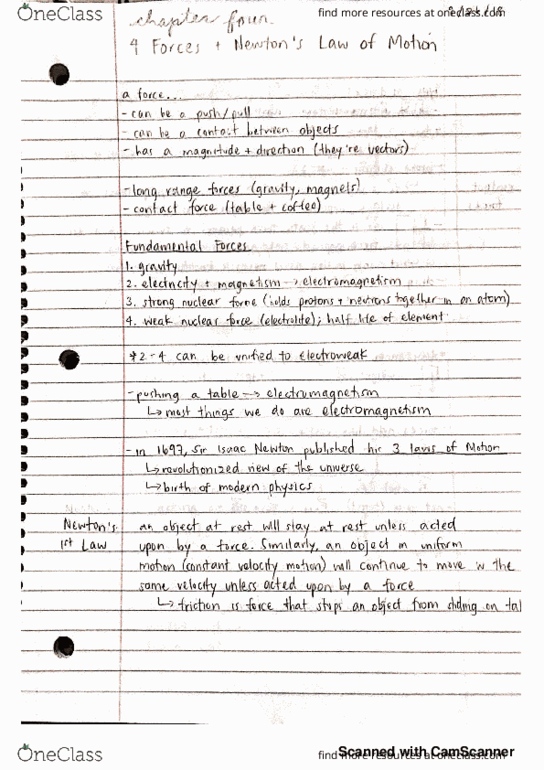 OneClass
find more resources at oneclass.com
chapter four
4 Forces + Newton's Law of Motion
a force...
- can be a push/pull
- can be a contact between objects
- has a magnitude + direction (they're vectors)
- long range forces (gravity, magnets)
- contact force (table + coffee)
Fundamental Forces
1. gravity
2. electricity + magnetism → electromagnetism
3. strong nuclear force (holds protons + neutrons together in an atom)
4. weak nuclear force (electrolite); half life of element
*2-4 can be unified to electroweak
- pushing a table → electromagnetism
↳ most things we do are electromagnetism
- in 1697, Sir Isaac Newton published his 3 laws of Motion
↳ revolutionized view of the universe
↳ birth of modern physics
Newton's 1st Law
an object at rest will stay at rest unless acted
upon by a force. Similarly, an object in uniform
motion (constant velocity motion) will continue to move w the
same velocity unless acted upon by a force
↳ friction is force that stops an object from sliding on tal
OneClass
find more resources at oneclass.com
Scanned with CamScanner